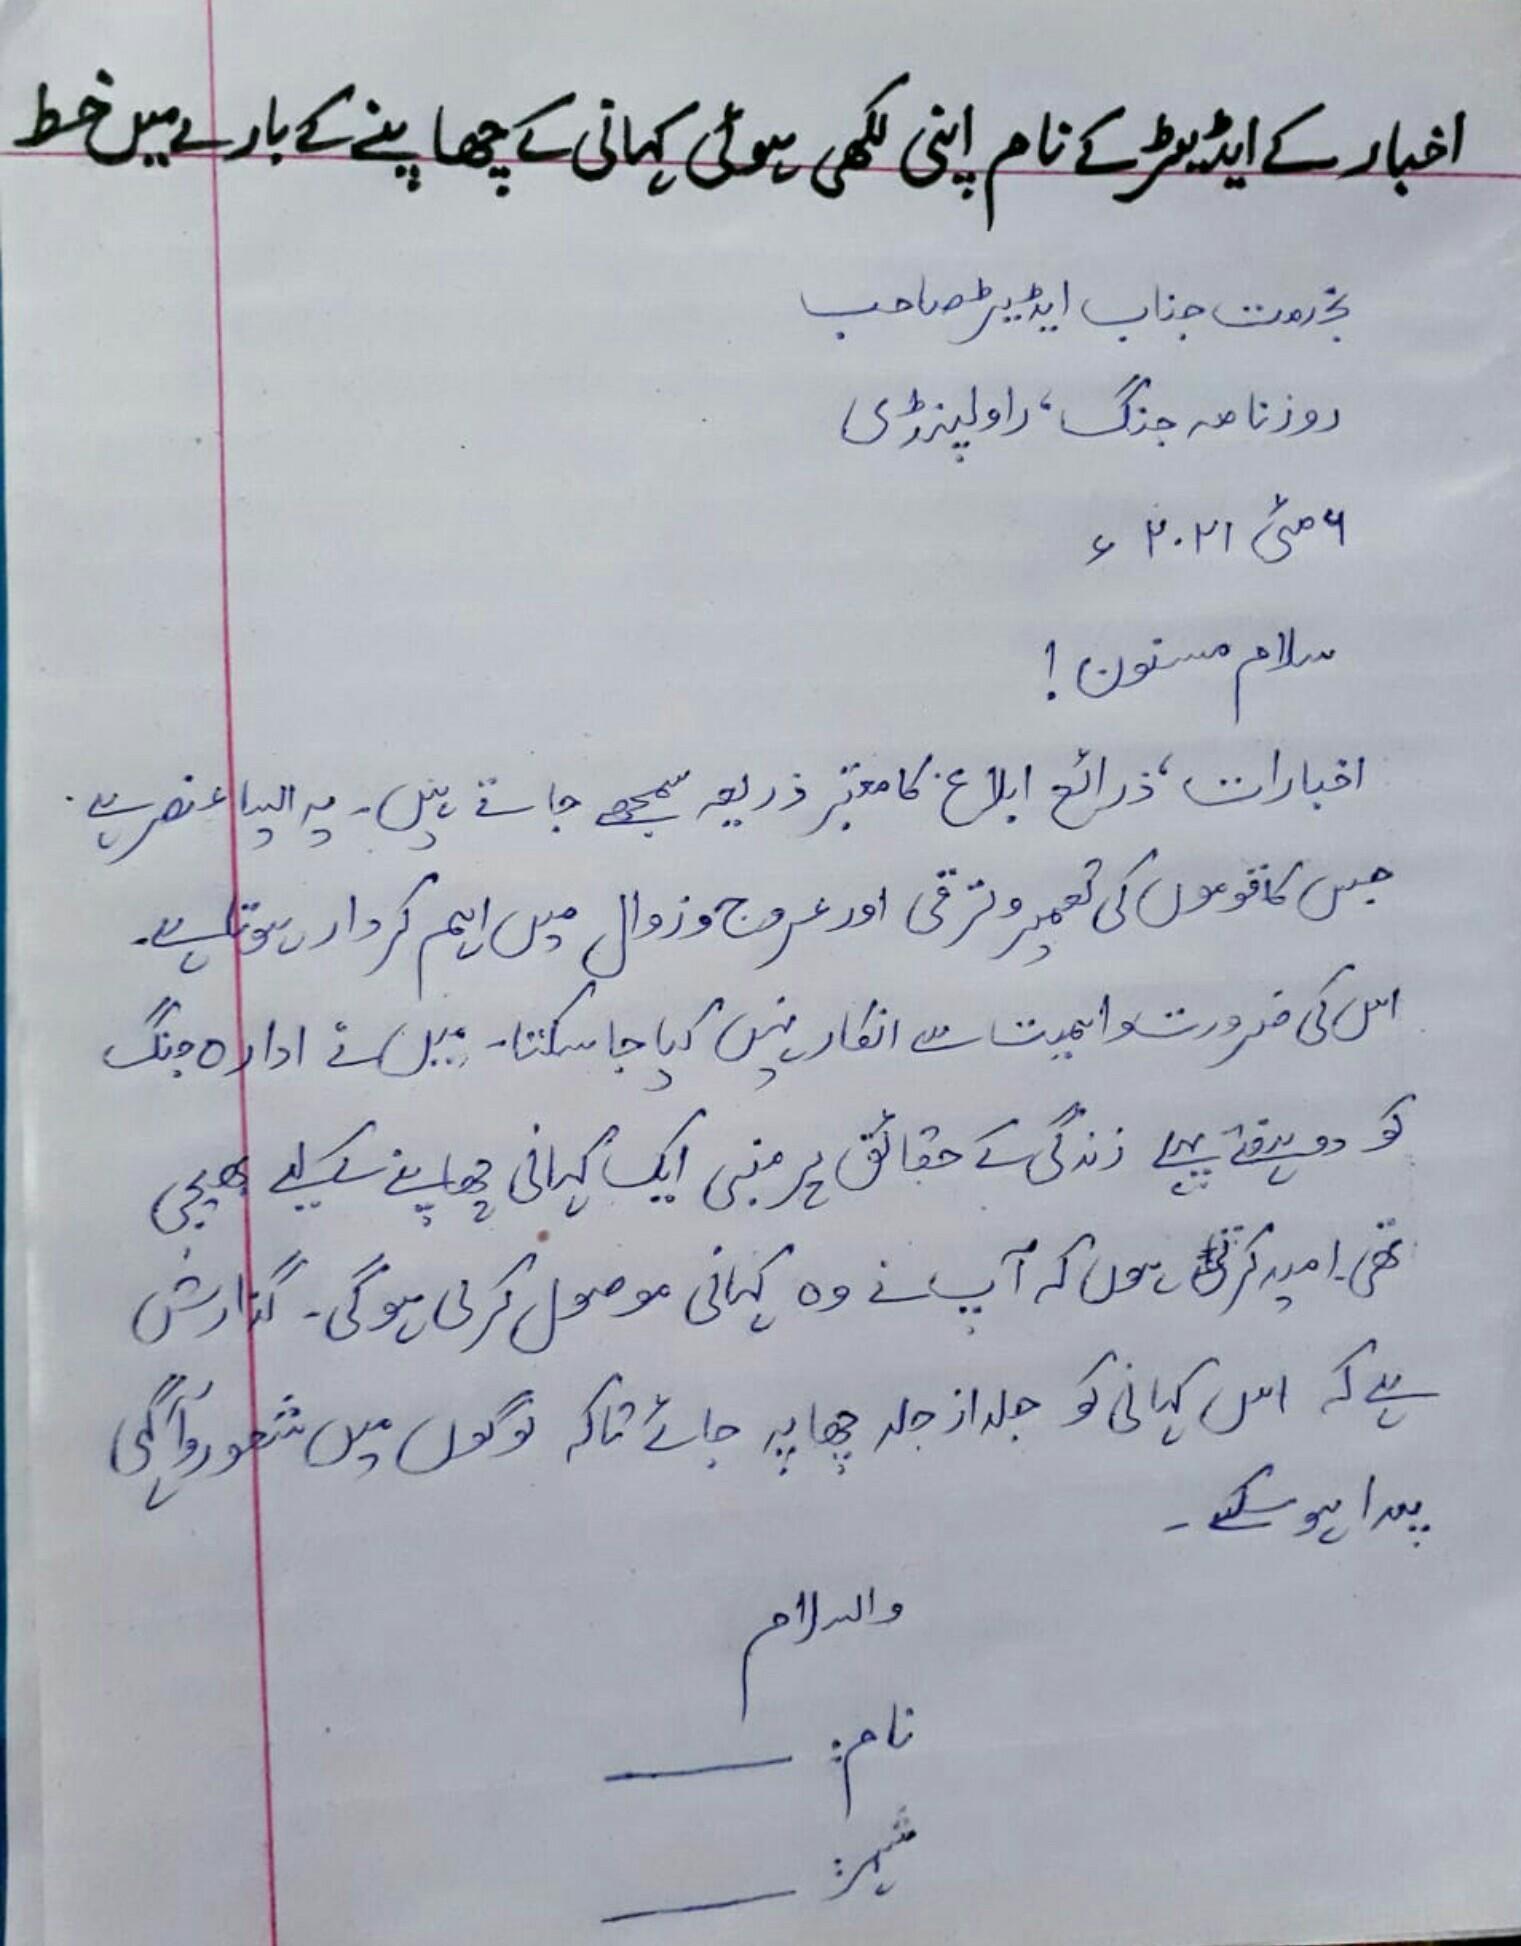 اخبار کے ایڈیٹر کے نام اپنی لکھی ہوئی کہانی کے چھاپنے کے بارے میں خط
بخدمت جناب ایڈیٹر صاحب
روزنامہ جنگ، راولپنڈی
۶ مئی ۲۰۲۱ ء
سلام مسنون !
اخبارات، ذرائع ابلاغ کا معتبر ذریعہ سمجھے جاتے ہیں۔ یہ ایسا عنصر ہے
جس کا قوموں کی تعمیر و ترقی اور عروج و زوال میں اہم کردار ہوتا ہے۔
اس کی ضرورت و اہمیت سے انکار نہیں کیا جا سکتا۔ میں نے ادارہ جنگ
کو دو ہفتے پہلے زندگی کے حقائق پر مبنی ایک کہانی چھاپنے کے لیے بھیجی
تھی۔ امید کرتی ہوں کہ آپ نے وہ کہانی موصول کر لی ہو گی۔ گذارش
ہے کہ اس کہانی کو جلد از جلد چھاپہ جائے تاکہ لوگوں میں شعور و آگہی
پیدا ہو سکے۔
والسلام
نام: ______
شہر: ______